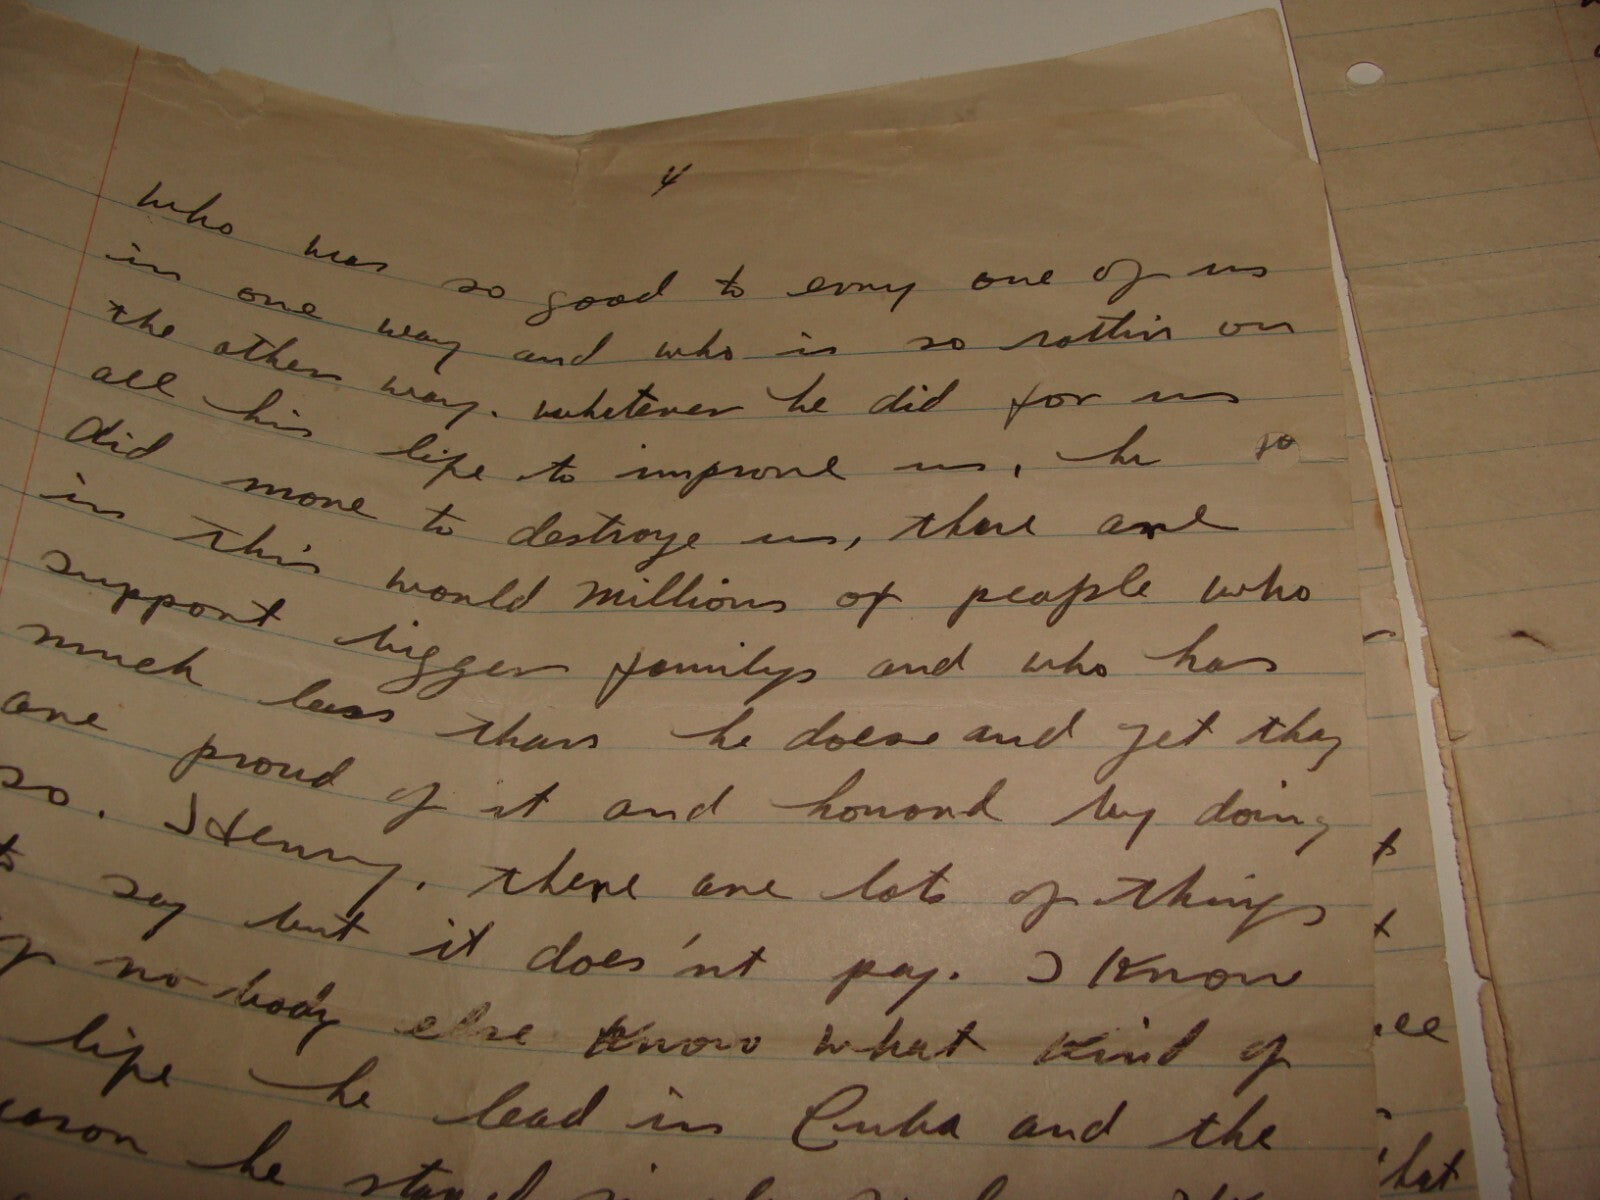 4
who was so good to evry one of us
in one way and who is so rottin on
the other way. whatever he did for us
all his life to improve us, he so
did more to destroye us, there are
in this world millions of people who
support bigger familys and who has
much less than he does and yet thay
are proud of it and honord by doing
so. Henry. there are lots of things
to say but it does'nt pay. I Know
no-body else know what kind of
life he lead in Cuba and the
he
hat